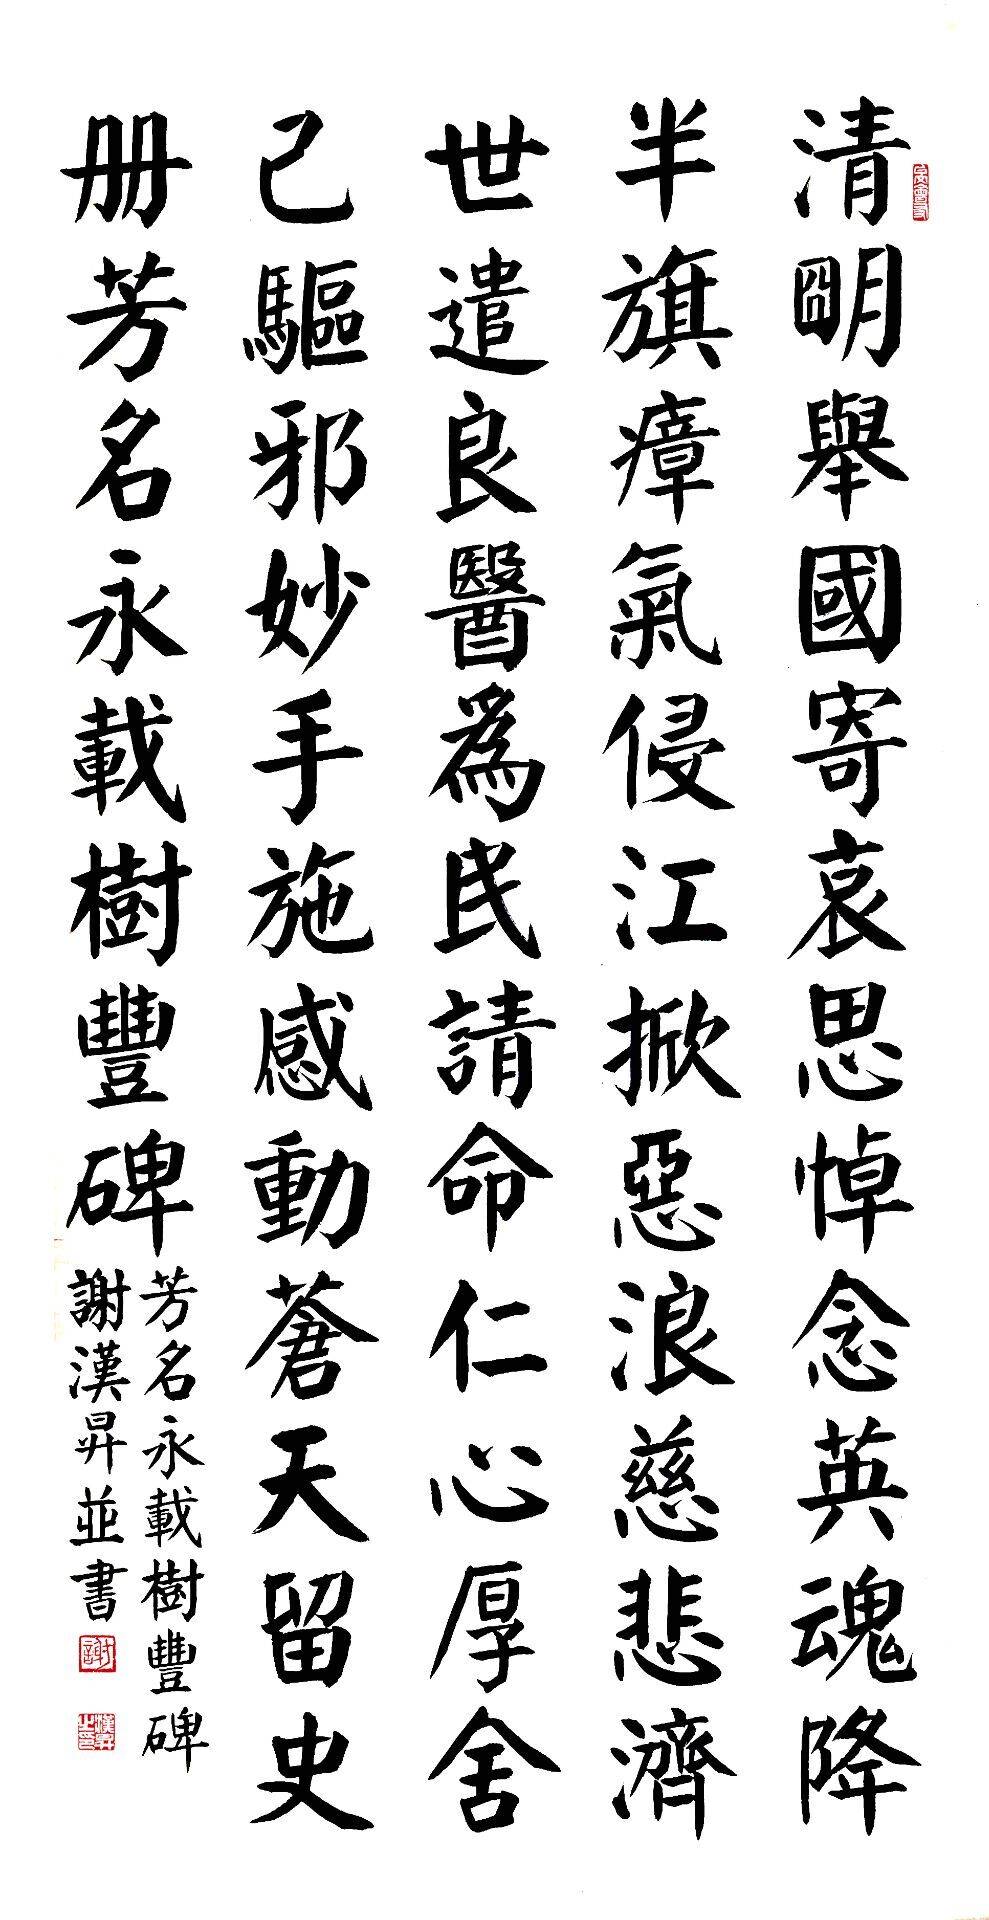 清明舉國寄哀思悼念英魂降
半旗瘴氣侵江掀惡浪慈悲濟
世遣良醫為民請命仁心厚舍
己驅邪妙手施感動蒼天留史
册芳名永載樹豐碑
芳名永載樹豐碑
謝漢昇並書
謝
漢昇之印